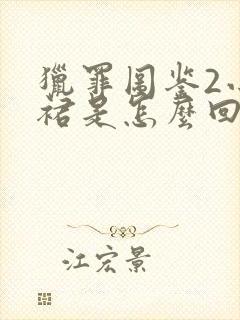 獵罪圖鉴2
裙是怎麼回
江宏景